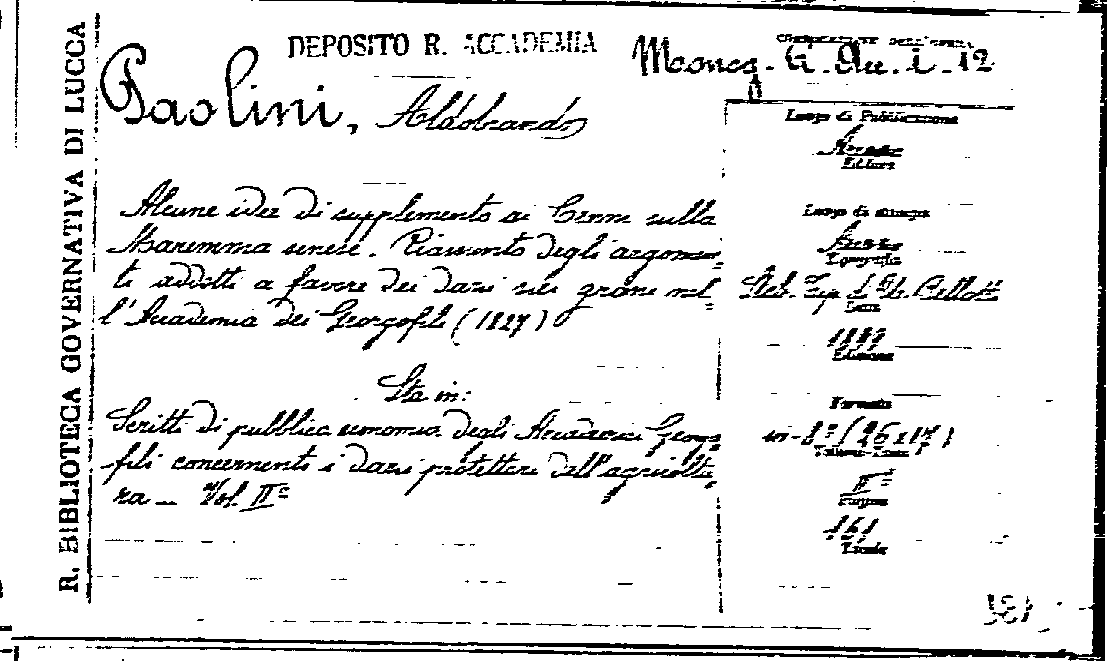 R. BIBLIOTECA GOVERNATIVA DI LUCCA
DEPOSITO R. ACCADEMIA
Paolini, Aldobrando
Alcune idee di supplemento ai Cenni sulla
Maremma senese. Riassunto degli argomen-
ti addotti a favore dei dazi sui grani nel-
l'Accademia dei Georgofili (1827)
Sta in:
Scritti di pubblica economia degli Accademici Georgo-
fili concernenti i dazi protettori dell'agricoltu-
ra - Vol. II°
COLLOCAZIONE DELL'OPERA
12
Luogo di Pubblicazione
Arezzo
Editore
Luogo di stampa
Arezzo
Tipografia
Stab. Tip. Bellotti
Data
1899
Edizione
Formato
in-8° (26x17)
Volume-Tomo
II°
Pagine
161